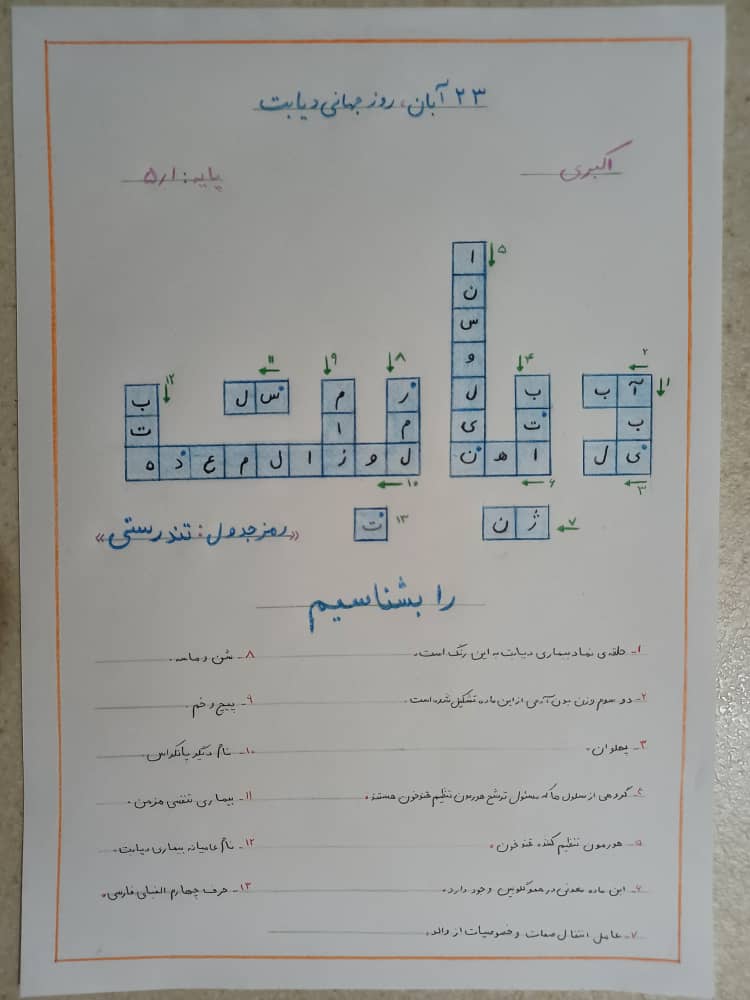 ۲۳ آبان، روز جهانی دیابت
اکبری
پایه: ۵/۱
۵
ا
ن
س
و
۱۲ ۱۱ ۹ ۸ ل ۴ ۲
ب ل س م ر ی ب ب آ ۱
ت ا م ت ب
ه د ع م ل ا ز و ل ن ه ا ل ی
۱۰ ۶ ۳
«رمز جدول: تندرستی» ت ۱۳ ن ژ ۷
را بشناسیم
۱- حلقه‌ی نماد بیماری دیابت به این رنگ است.
۲- دو سوم وزن بدن آدمی از این ماده تشکیل شده است.
۳- پهلوان.
۴- گروهی از سلول ها که مسئول ترشح هورمون تنظیم قند خون هستند.
۵- هورمون تنظیم کننده قند خون.
۶- این ماده معدنی در هموگلوبین وجود دارد.
۷- عامل انتقال صفات و خصوصیات از والد.
۸- شن و ماسه.
۹- پیچ و خم.
۱۰- نام دیگر پانکراس.
۱۱- بیماری تنفسی مزمن.
۱۲- نام عامیانه بیماری دیابت.
۱۳- حرف چهارم الفبای فارسی.